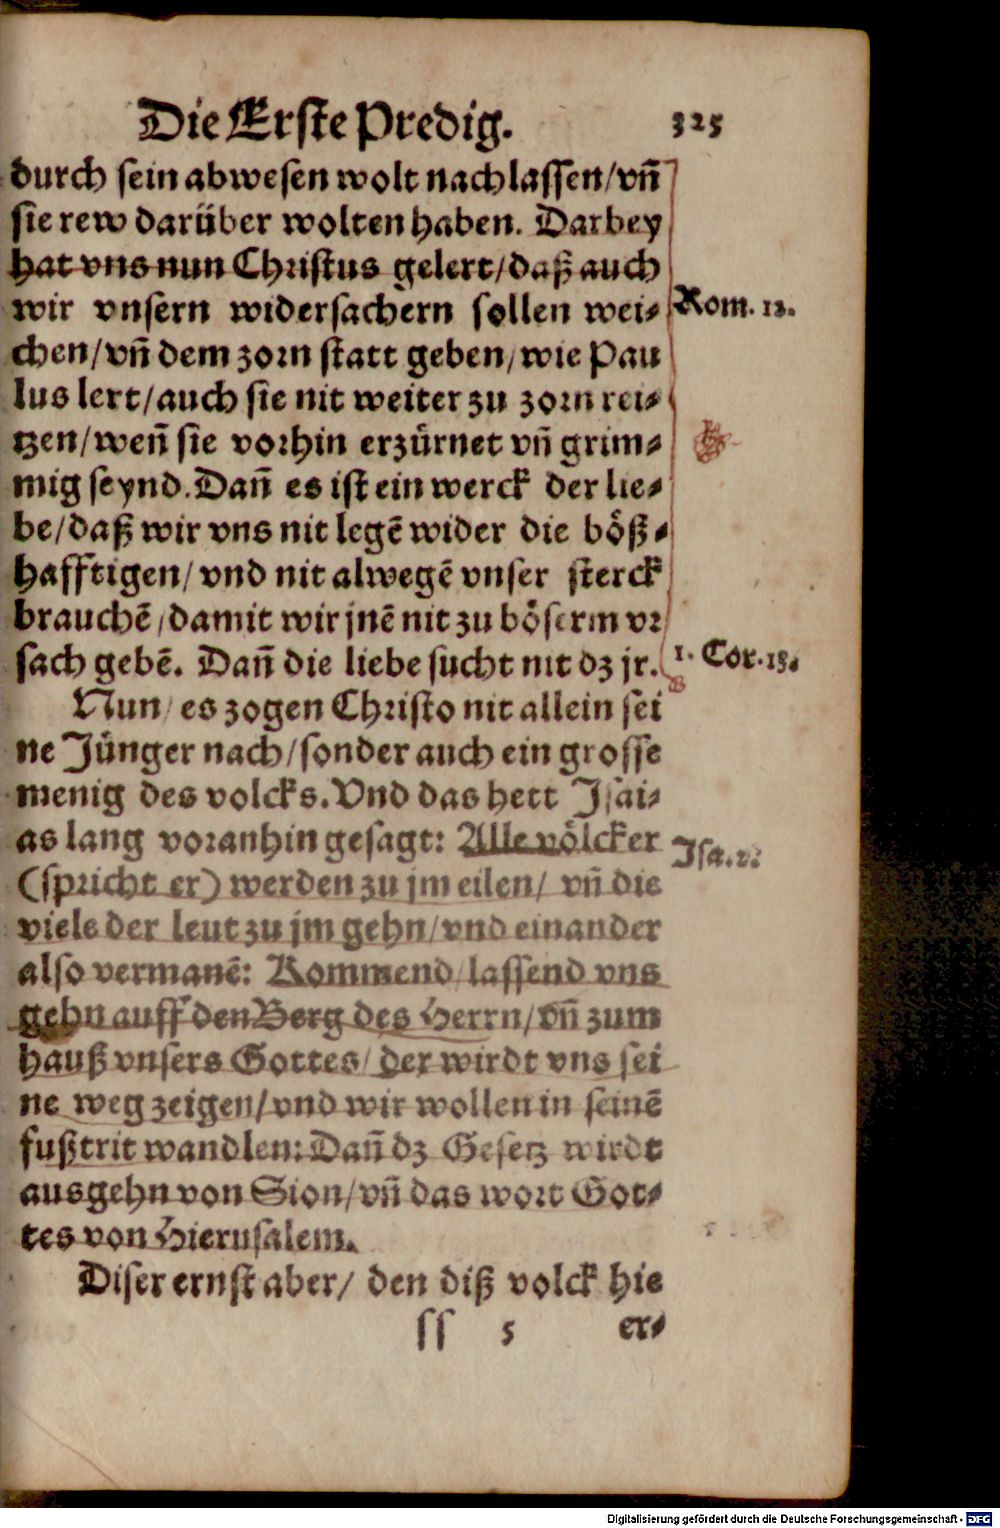 Die Erste Predig. 325
durch sein abwesen wolt nachlassen/vñ
sie rew darüber wolten haben. Darbey
hat vns nun Christus gelert/daß auch
wir vnsern widersachern sollen wei-
Rom. 12.
chen/vñ dem zorn statt geben/wie Pau
lus lert/auch sie nit weiter zu zorn rei-
tzen/weñ sie vorhin erzürnet vñ grim-
mig seynd. Dañ es ist ein werck der lie-
be/daß wir vns nit legẽ wider die böß-
hafftigen/vnd nit alwegẽ vnser sterck
brauchẽ/damit wir jnẽ nit zu böserm vr
sach gebẽ. Dañ die liebe sucht nit dz jr.
1. Cor. 13.
Nun/es zogen Christo nit allein sei
ne Jünger nach/sonder auch ein grosse
menig des volcks. Vnd das hett Jsai-
as lang voranhin gesagt: Alle völcker
Jsa. 2.
(spricht er) werden zu jm eilen/ vñ die
viele der leut zu jm gehn/vnd einander
also vermanẽ: Kommend/lassend vns
gehn auff den Berg des Herrn/vñ zum
hauß vnsers Gottes/der wirdt vns sei
ne weg zeigen/vnd wir wollen in seinẽ
fußtrit wandlen: Dañ dz Gesetz wirdt
ausgehn von Sion/vñ das wort Got-
tes von Hierusalem.
Diser ernst aber/ den diß volck hie
ss 5 er-
Digitalisierung gefördert durch die Deutsche Forschungsgemeinschaft - DFG